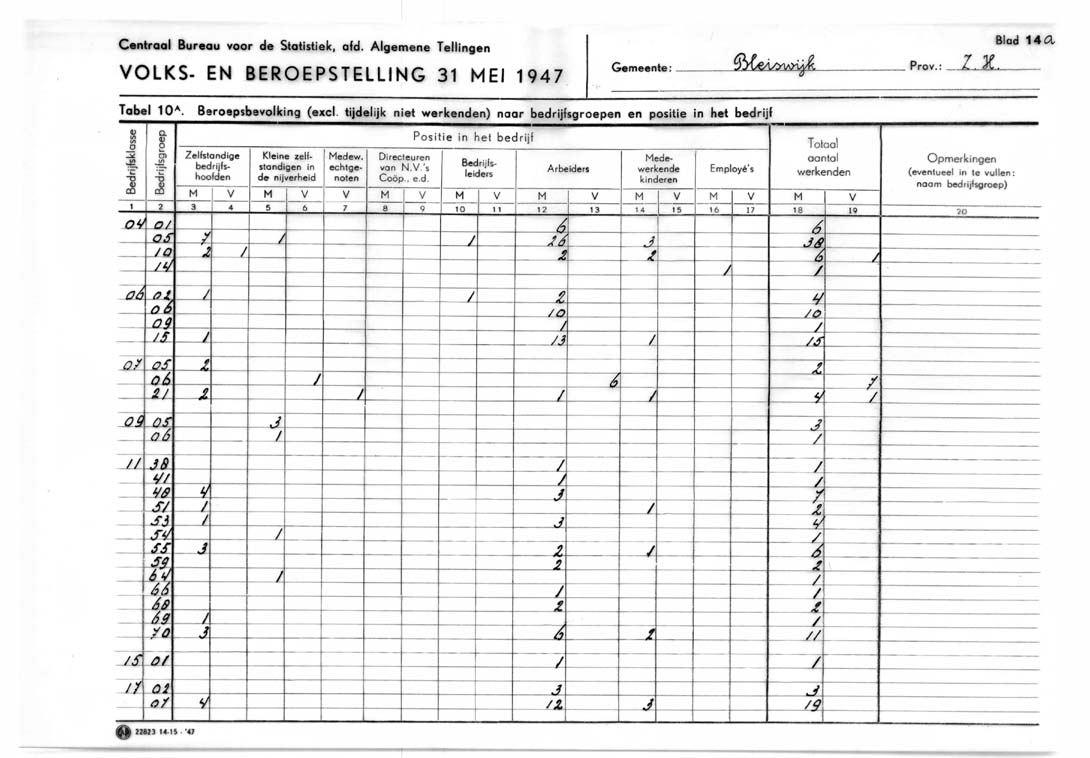 Blad 14a
Centraal Bureau voor de Statistiek, afd. Algemene Tellingen
VOLKS- EN BEROEPSTELLING 31 MEI 1947
Gemeente: Bleiswijk Prov.: Z.H.
Tabel 10A. Beroepsbevolking (excl. tijdelijk niet werkenden) naar bedrijfsgroepen en positie in het bedrijf
Bedrijfsklasse Bedrijfsgroep Positie in het bedrijf Totaal aantal werkenden Opmerkingen (eventueel in te vullen: naam bedrijfsgroep)
Zelfstandige bedrijfs-hoofden Kleine zelf-standigen in de nijverheid Medew. echtge-noten Directeuren van N.V.'s Coöp., e.d. Bedrijfs-leiders Arbeiders Mede-werkende kinderen Employé's
M V M V V M V M V M V M V M V M V
1 2 3 4 5 6 7 8 9 10 11 12 13 14 15 16 17 18 19 20
04 01 6 6
05 7 1 1 26 3 38
10 2 1 2 2 6 1
14 1 1
06 02 1 1 2 4
06 10 10
09 1 1
15 1 13 1 15
07 05 2 2
06 1 6 7
21 2 1 1 1 4 1
09 05 3 3
06 1 1
11 38 1 1
41 1 1
48 4 3 7
51 1 1 2
53 1 3 4
54 1 1
55 3 2 1 6
59 2 2
64 1 1
66 1 1
68 2 2
69 1 1
70 3 6 2 11
15 01 1 1
17 02 3 3
07 4 12 3 19
22823 14-15 - '47